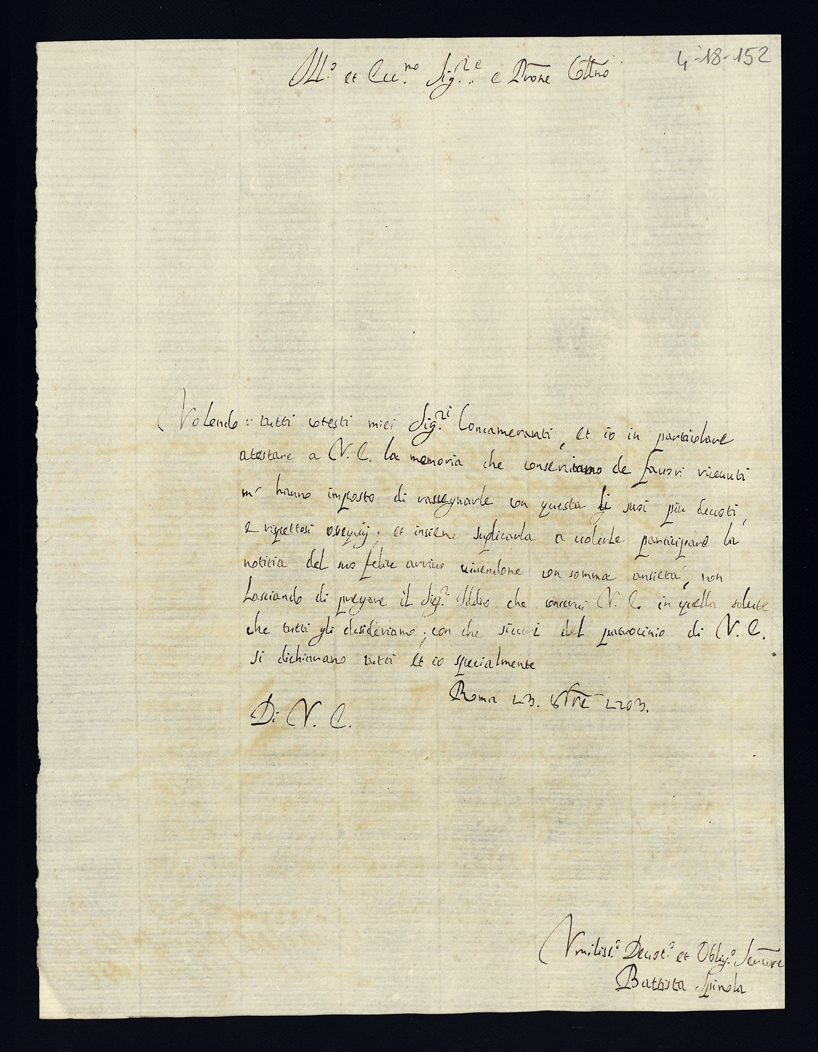 4-18-152
Ill.o et Ecc.mo Sig.re e Prone Coll.mo
Volendo tutti cotesti miei Sig.ri Concameranti, et io in particolare
atestare a V. E. la memoria che conserviamo de favori riceuuti
m' hanno imposto di rassegnarle con questa li suoi piu deuoti,
e rispettosi ossequij, et insieme suplicarla a volerle participare la
notitia del suo felice arrivo viuendone con somma ansietà, non
lasciando di pregare il Sig.r Iddio che conservi V. E. in quella salute
che tutti gli desideriamo, con che sicuri del patrocinio di V. E.
si dichiarano tutti et io specialmente
Roma 23. 1703.
Di V. E.
Vmiliss.o Deuot.o et Oblig.o Seruitore
Battista Spinola